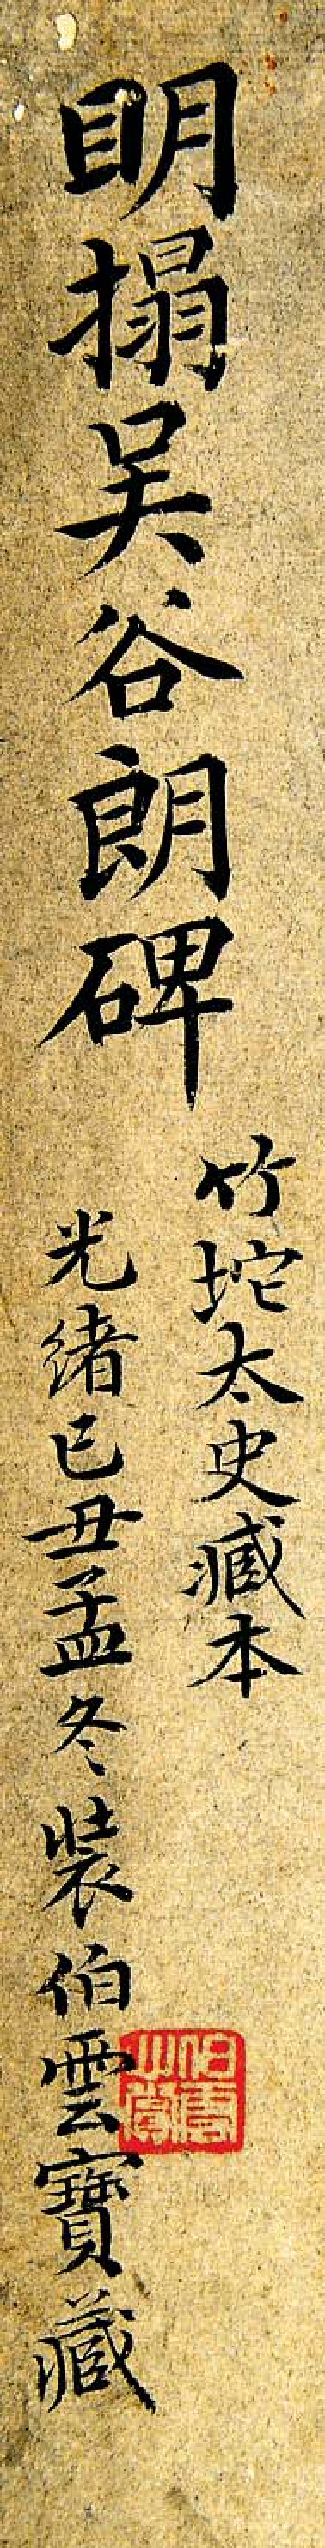 明搨吴谷朗碑
竹垞太史藏本
光緒己丑孟冬装伯雲寶藏